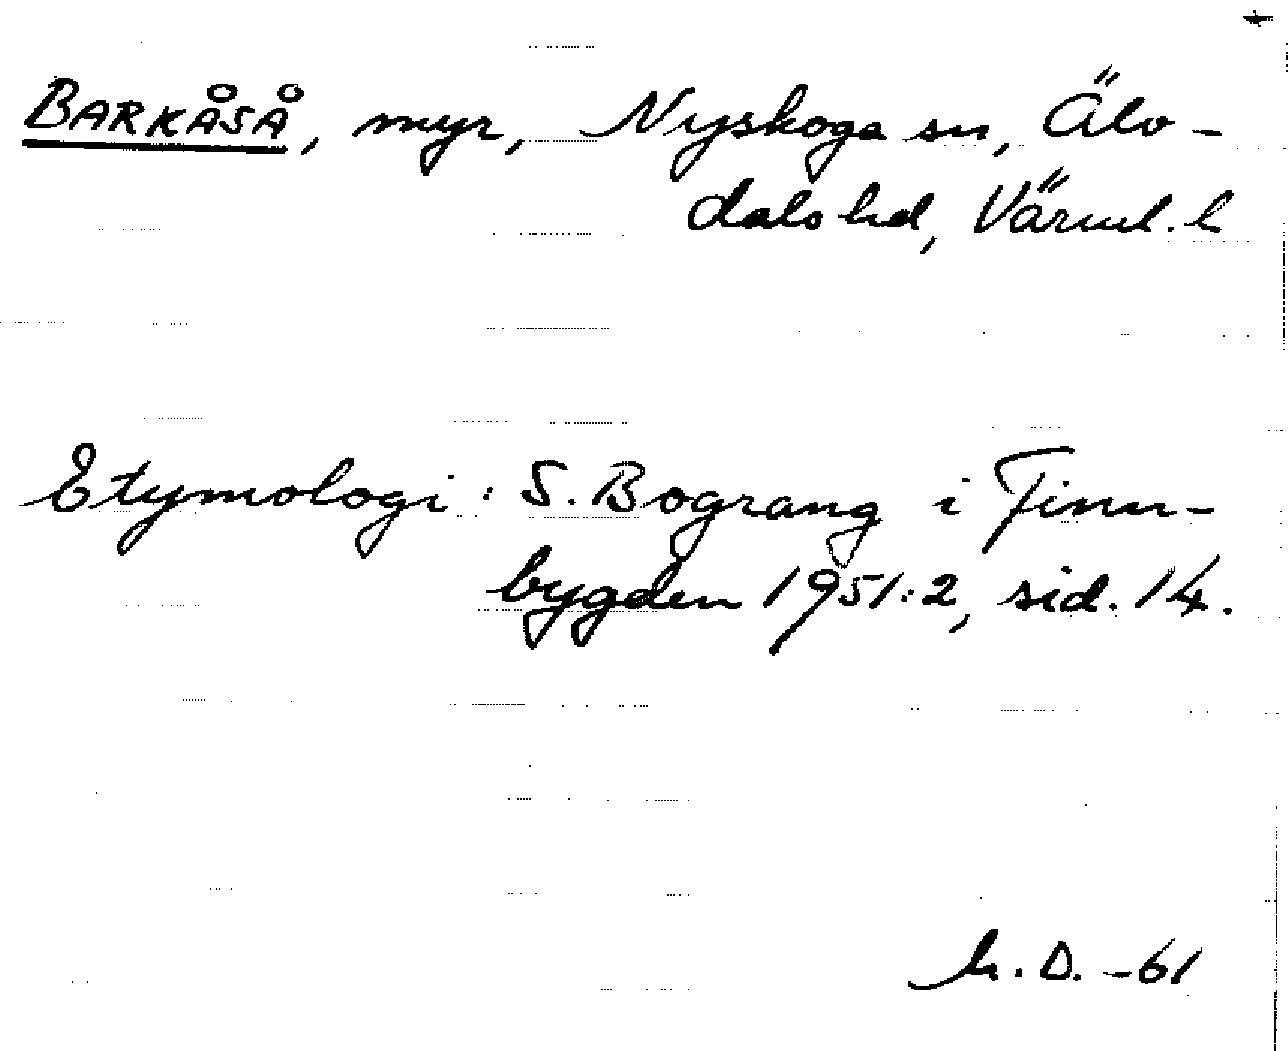 BARKÅSÅ, myr, Nyskoga sn, Älv-
dals hd, Värml. l
Etymologi: S. Bograng i Finn-
bygden 1951:2, sid. 14.
h. D. -61